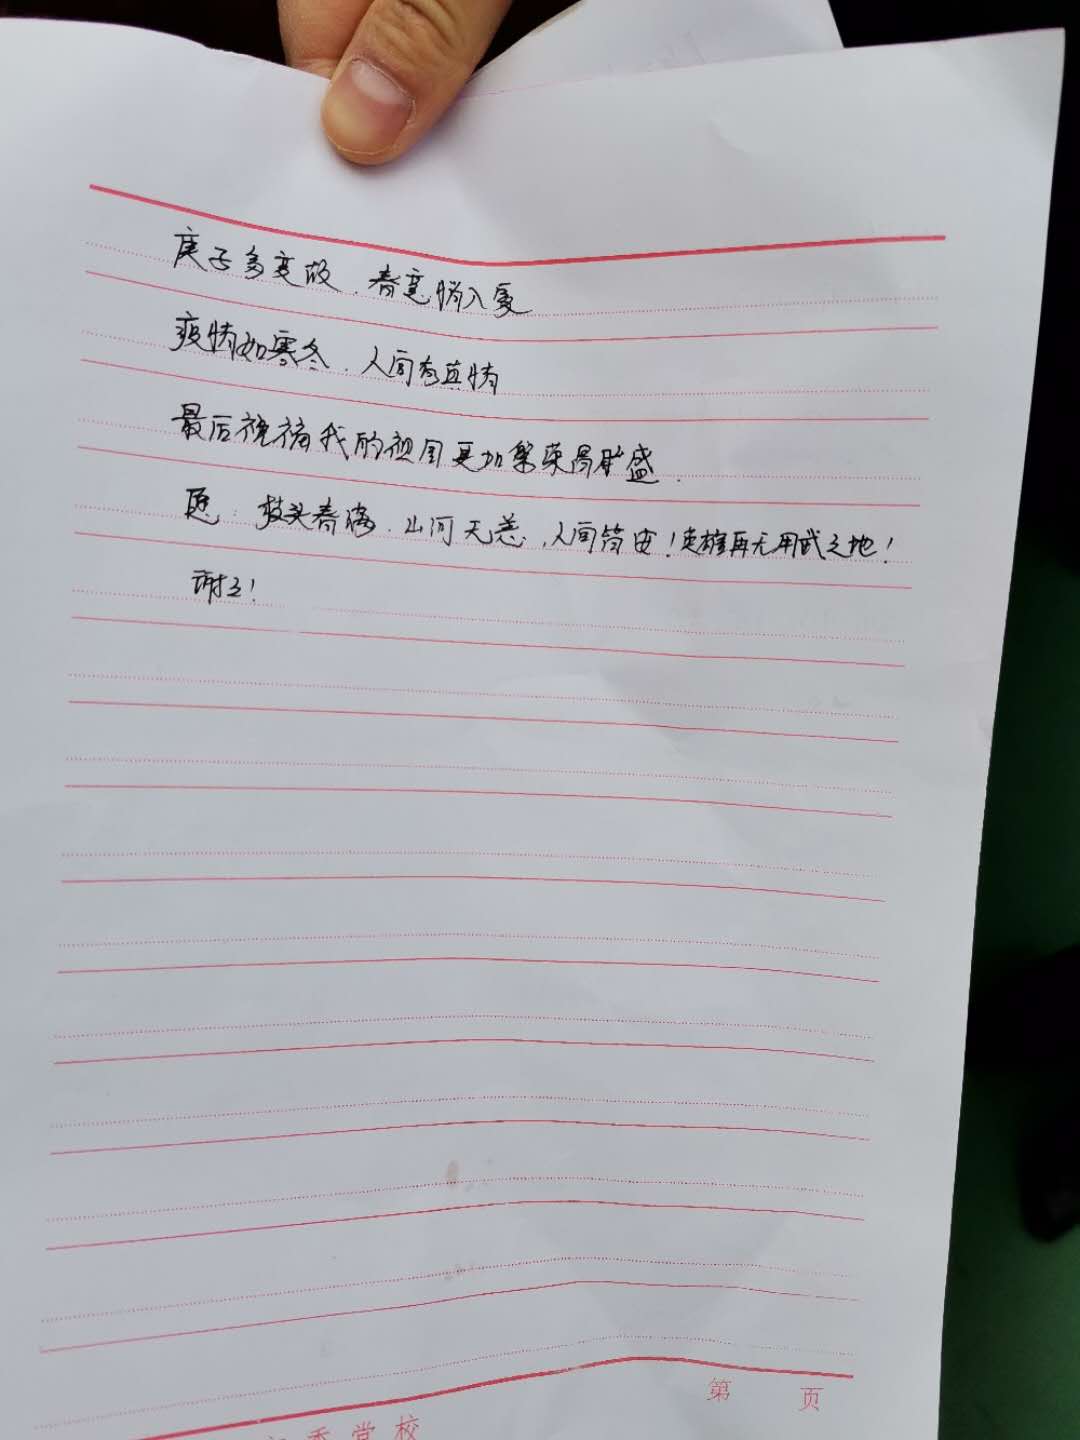 庚子多变故.春意悄入夏
疫情如寒冬.人间有真情
最后祝福我的祖国更加繁荣昌盛.
愿:枝头春满.山河无恙,人间皆安!英雄再无用武之地!
谢谢!
第 页
委党校